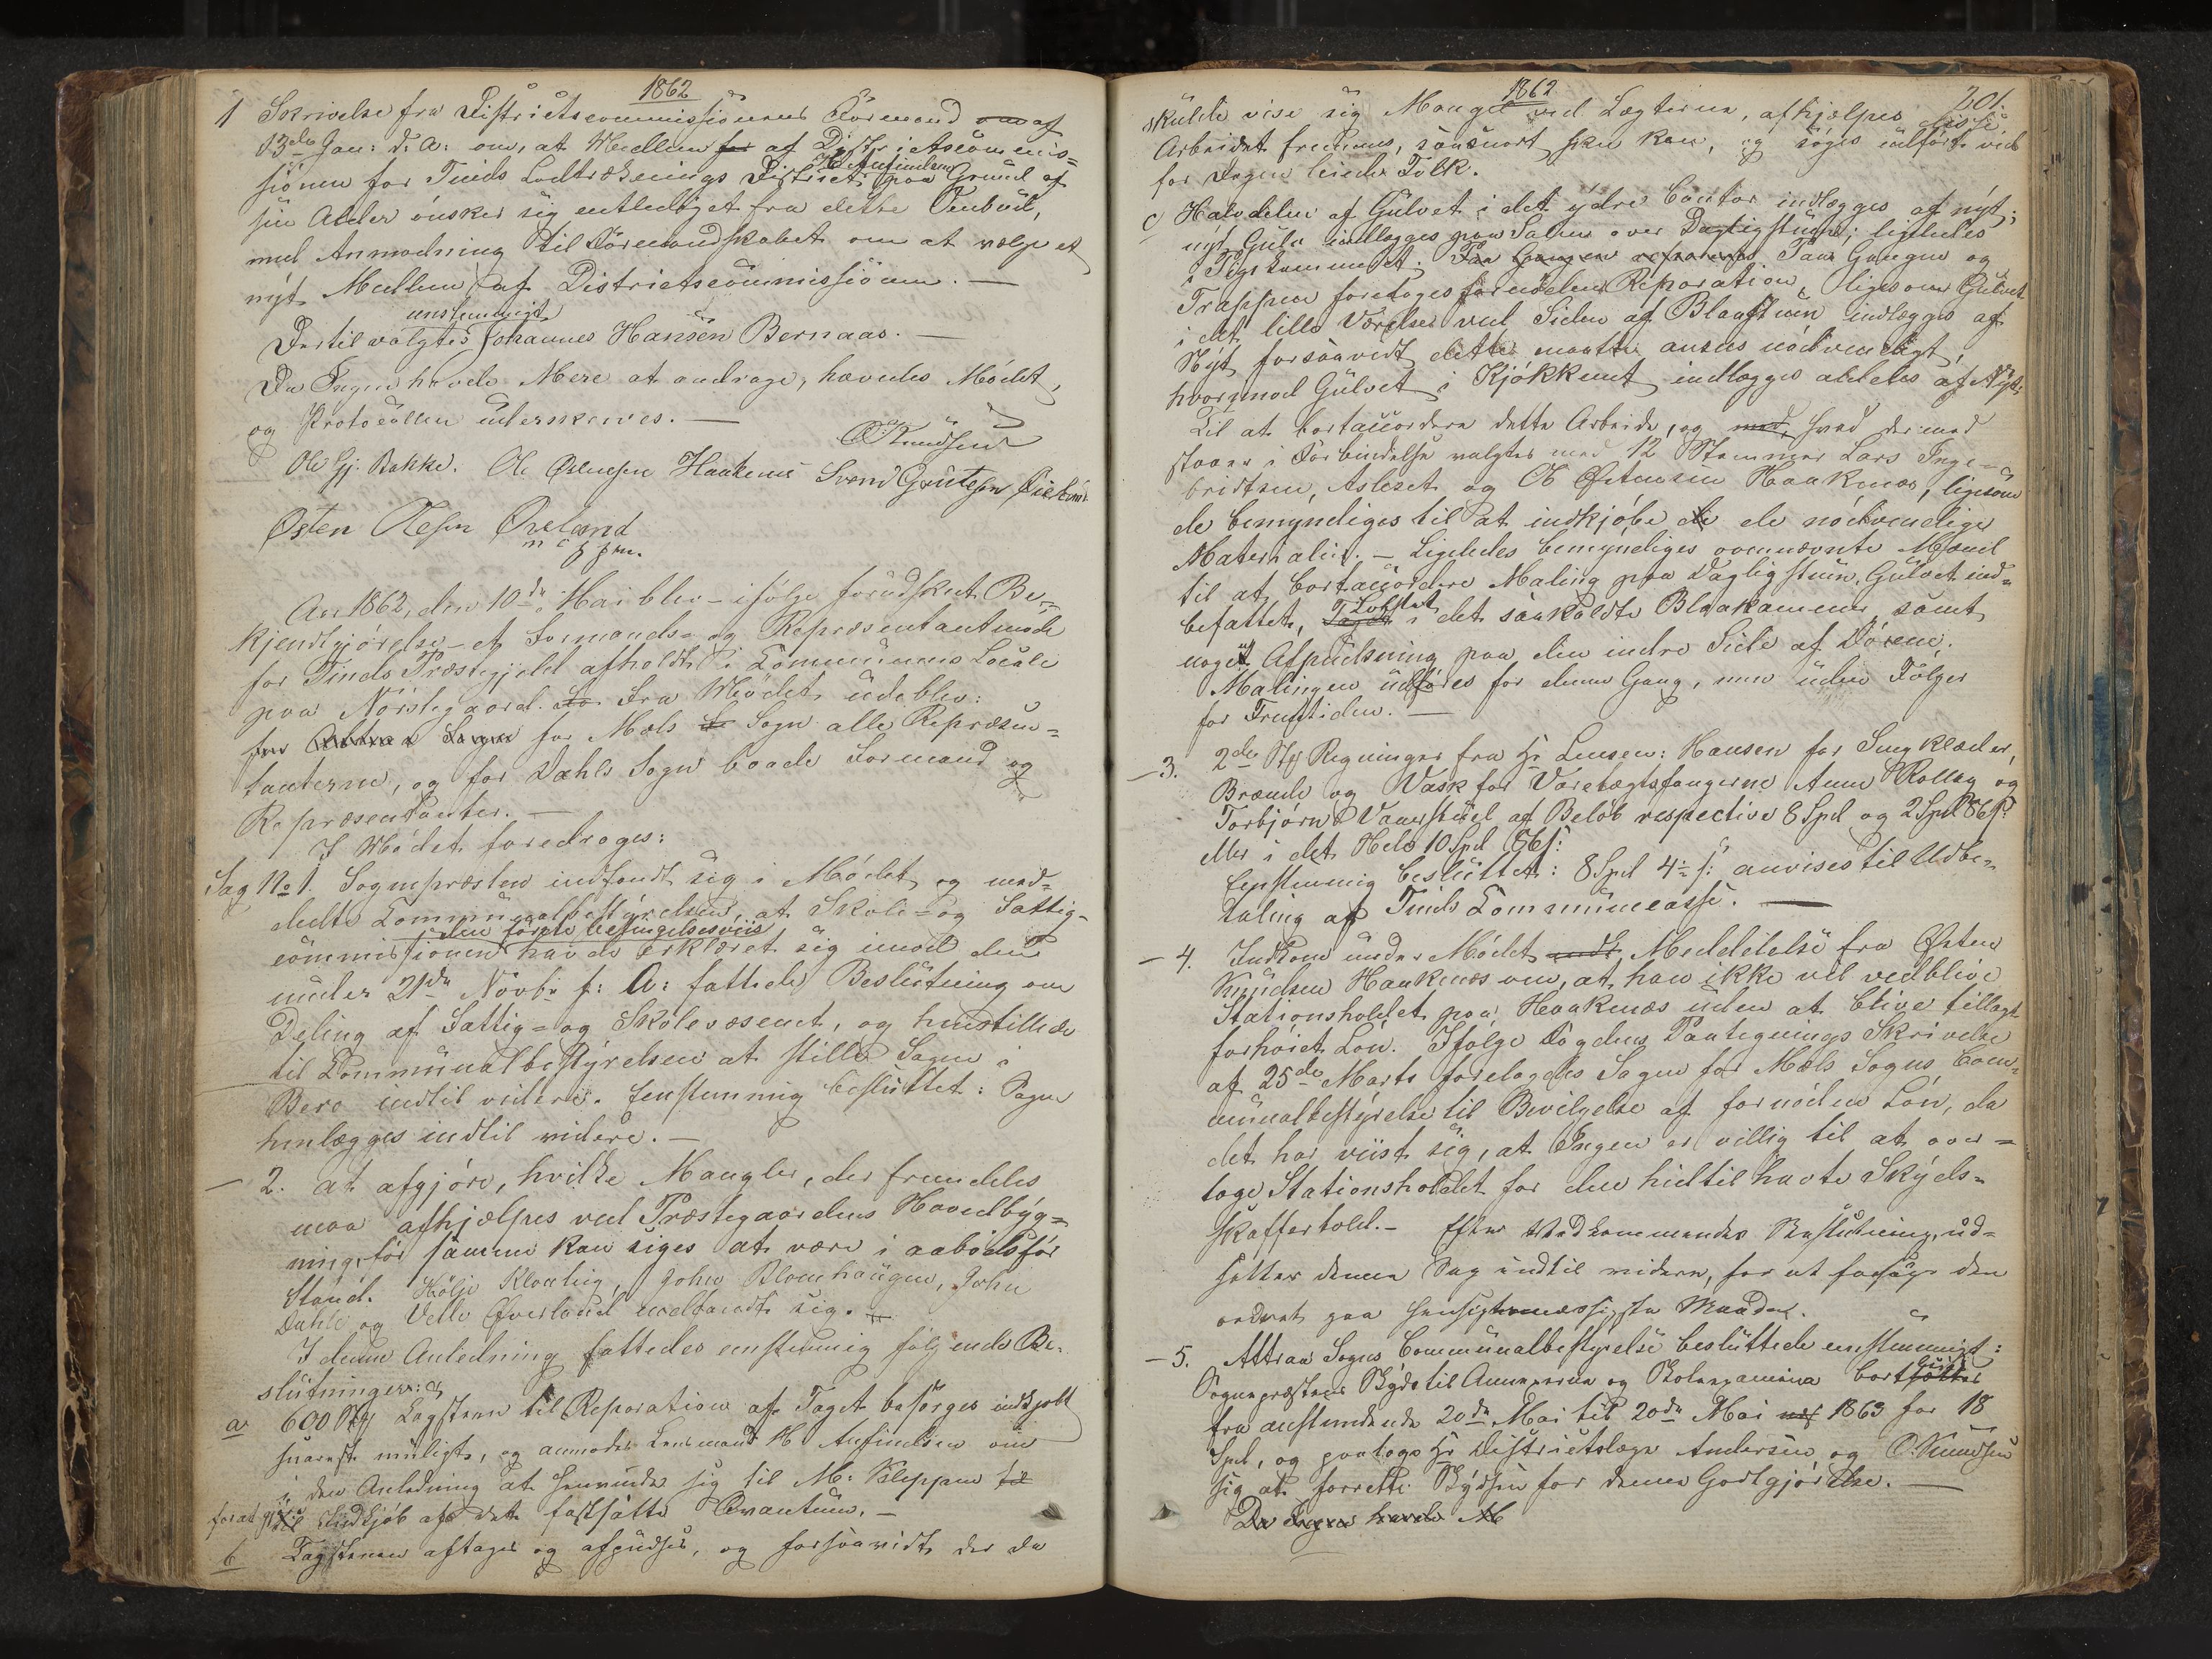 1862
1 Skrivelse fra Districtscommissionens Formand af
13de Jan: d: A: om, at Medlem af Districtscommis=
H. Anfindsen
sionen for Tinds Lodtræknings District paa Grund af
sin Alder ønsker sig entlediget fra dette Ombud,
med Anmodning til Formandskabet om at vælge et
nyt Medlem af Districtscommissionen. —
enstemmigt
Dertil valgtes Johannes Hansen Bernaas. —
Da Ingen havde Mere at andrage, hævedes Mødet,
og Protocollen underskreves. —
O Knudsen
Ole Gj. Bakke. Ole Østensen Haakenæs Svend Gjutesen
Østen Olesen Øveland
m f p m.
Aar 1862, den 10de Mai blev – ifølge forudskeet Be=
kjendtgjørelse – et Formands- og Repræsentantmøde
for Tinds Præstegjeld afholdt i Communens Locale
paa Nørstegaard. Fra Mødet udeblev:
for Mæls Sogn alle Repræsen=
tanterne, og for Dahls Sogn baade Formand og
Repræsentanter. —
I Mødet foredroges:
Sag No 1. Sognepræsten indfandt sig i Mødet og med=
deelte Communalbestyrelsen, at Skole- og Fattig-
den første betingelsesviis
commissionen havde erklæret sig imod den
under 21de Novbr f: A: fattede Beslutning om
Deling af Fattig- og Skolevæsenet, og henstillede
til Communalbestyrelsen at stille Sagen i
Bero indtil videre. Eenstemmig besluttet: Sagen
henlægges indtil videre. —
— 2. at afgjøre, hvilke Mangler, der fremdeles
maa afhjælpes ved Præstegaardens Hovedbyg=
ning, før samme kan siges at være i aabodsfør
Stand. Hølje Kloaling, John Blomhaugen, John
Dahle og Velle Øverland indfandt sig. —
I denne Anledning fattedes enstemmig følgende Be=
slutninger:
a 600 Stk Tagsteen til Reparation af Taget besørges indkjøbt
snarest muligt, og anmodes Lensmand H Anfindsen om
i den Anledning at henvende sig til M: Kleppen
for at gjøre Indkjøb af det fastsatte Qvantum. —
b Tagstenen aftages og afpudses, og forsaavidt der da
1862
201.
skulde vise sig Mangel ved Lægterne, afhjælpes disse.
Arbeidet fremmes, saasnart skee kan, og søges udført ved
for Dagen leiede Folk.
c Halvdelen af Gulvet i det ydre Contor indlægges af nyt;
nyt Gulv indlægges paa Salen over Dagligstuen; ligeledes
i Pigekammeret. Paa Gangen og
Trappen foretages fornøden Reparation, ligesom Gulvet
i det lille Værelse ved Siden af Blaastuen indlægges af
Nyt forsaavidt dette maatte ansees nødvendigt,
hvorimod Gulvet i Kjøkkenet indlægges aldeles af Nyt.
Til at bortaccordere dette Arbeide, og hvad dermed
staaer i Forbindelse valgtes med 12 Stemmer Lars Inge=
bridtsen, Asleset og Ole Østensen Haakenæs, ligesom
de bemyndiges til at indkjøbe de nødvendige
Materialier. — Ligeledes bemyndiges ovennævnte Mænd
til at bortaccordere Maling paa Dagligstuen, Gulvet ind=
befattet, Loftet i det saakaldte Blaakammer, samt
noget Afpudsning paa den indre Side af Dørene.
Malingen udføres for denne Gang, men uden Følger
for Fremtiden. —
— 3. 2de Stk Regninger fra Hr Lensm: Hansen for Sengklæder,
Brænde og Vask for Varetægtsfangerne Anne Rollag og
Torbjørn Vaaerstuel af Beløb respective 8 Spd og 2 Spd 86 s:
eller i det Hele 10 Spd 86 s:
Eenstemmig besluttet: 8 Spd 4 - s: anvises til Udbe=
taling af Tinds Communecasse. —
— 4. Indkom under Mødet Meddelelse fra Østen
Knudsen Haakenæs om, at han ikke vil vedblive
Stationsholdet paa Haakenæs uden at blive tillagt
forhøiet Løn. Ifølge Fogdens Paategnings Skrivelse
af 25de Marts forelagdes Sagen for Mæls Sogns Com=
munalbestyrelse til Bevilgelse af fornøden Løn, da
det har viist sig, at Ingen er villig til at over=
tage Stationsholdet for den hidtil havte Skyds=
skaffertold. – Efter Vedkommendes Beslutning, ud=
sættes denne Sag indtil videre, for at forsøge den
ordnet paa hensigtsmæssigste Maade.
— 5. Attraa Sogns Communalbestyrelse besluttede enstemmigt:
Sognepræstens Skyds til Annexerne og Skoleexamina bortsættes
fra anstundende 20de Mai til 20de Mai 1863 for 18
Spd, og paatog Hr Districtslæge Andersen og O. Knudsen
sig at forrette Skydsen for denne Godtgjørelse. —
Da Ingen havde M